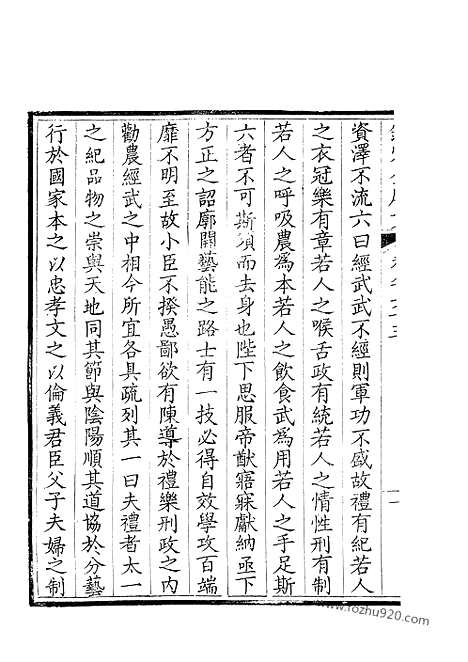 資澤不流六曰經武武不經則軍功不盛故禮有紀若人
之衣冠樂有章若人之喉舌政有統若人之情性刑有制
若人之呼吸農為本若人之飲食武為用若人之手足斯
六者不可斯須而去身也陛下思服帝猷寤寐獻納亟下
方正之詔廓開藝能之路士有一技必得自效學攻百端
靡不明至故小臣不揆愚鄙欲有陳導於禮樂刑政之內
勸農經武之中相今所宜各具疏列其一曰夫禮者太一
之紀品物之崇與天地同其節與陰陽順其道協於分藝
行於國家本之以忠孝文之以倫義君臣父子夫婦之制
www.rozhu920.com